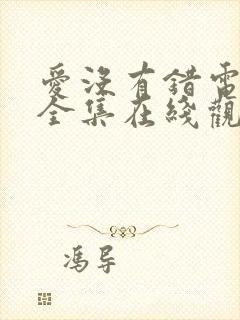 愛沒有錯電
全集在綫觀
馮导